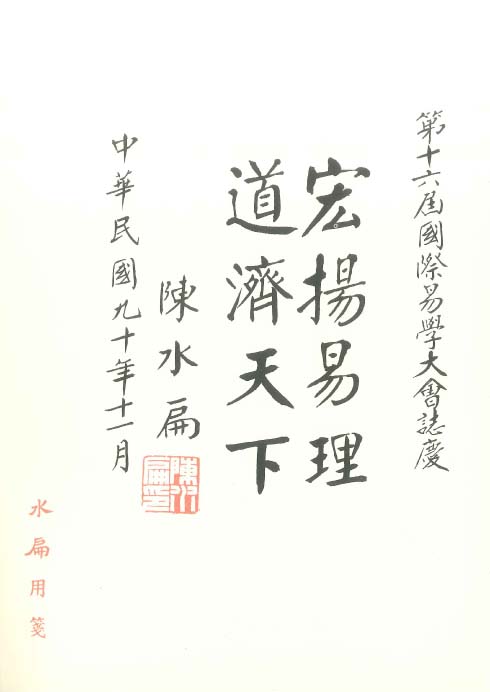 第十六屆國際易學大會誌慶
宏揚易理
道濟天下
陳水扁
陳水扁印
中華民國九十年十一月
水扁用箋